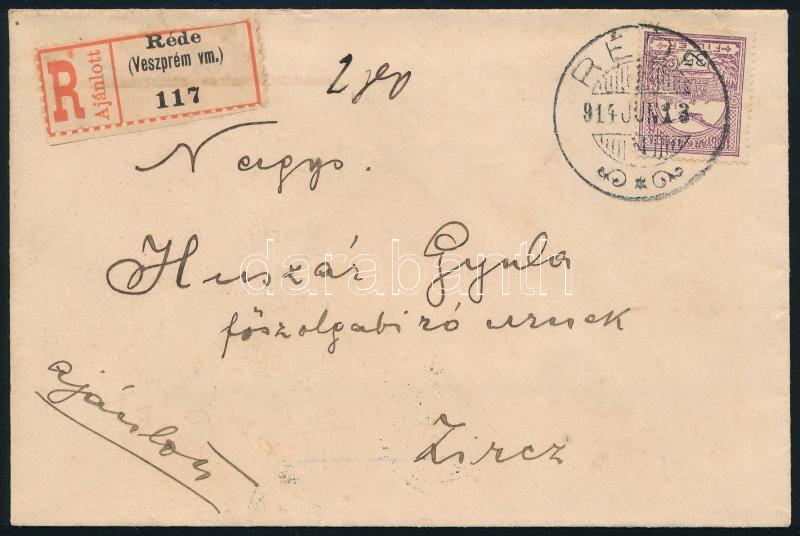 R Ajánlott
Réde
(Veszprém vm.)
117
2 jep
RÉDE
914 JUN 13
35
FILLÉR
MAGYAR
Nagys.
Huszár Gyula
főszolgabiró urnak
ajánlott
Zircz
darabanth